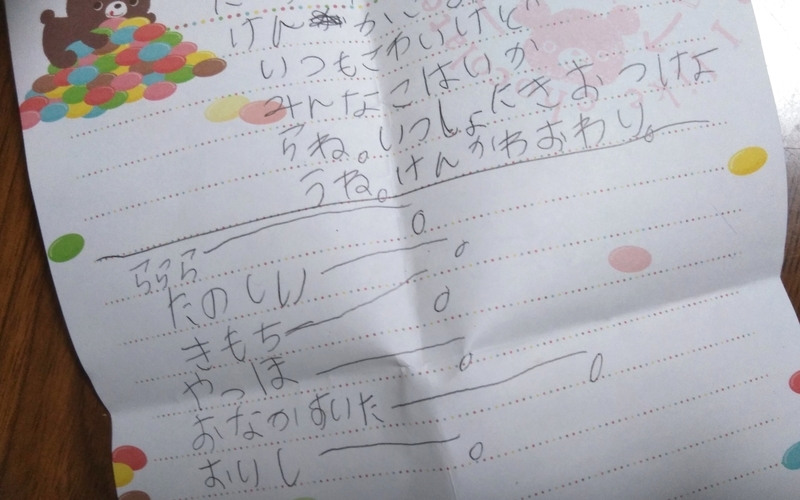 けん かこ
いつもこわいけど
みんなこはいか
らね。いっしょにきおつけよ
うね。けんかわおわり。
ららら——。
たのしい——。
きもち——。
やっほ——。
おなかすいた——。
おりし——。